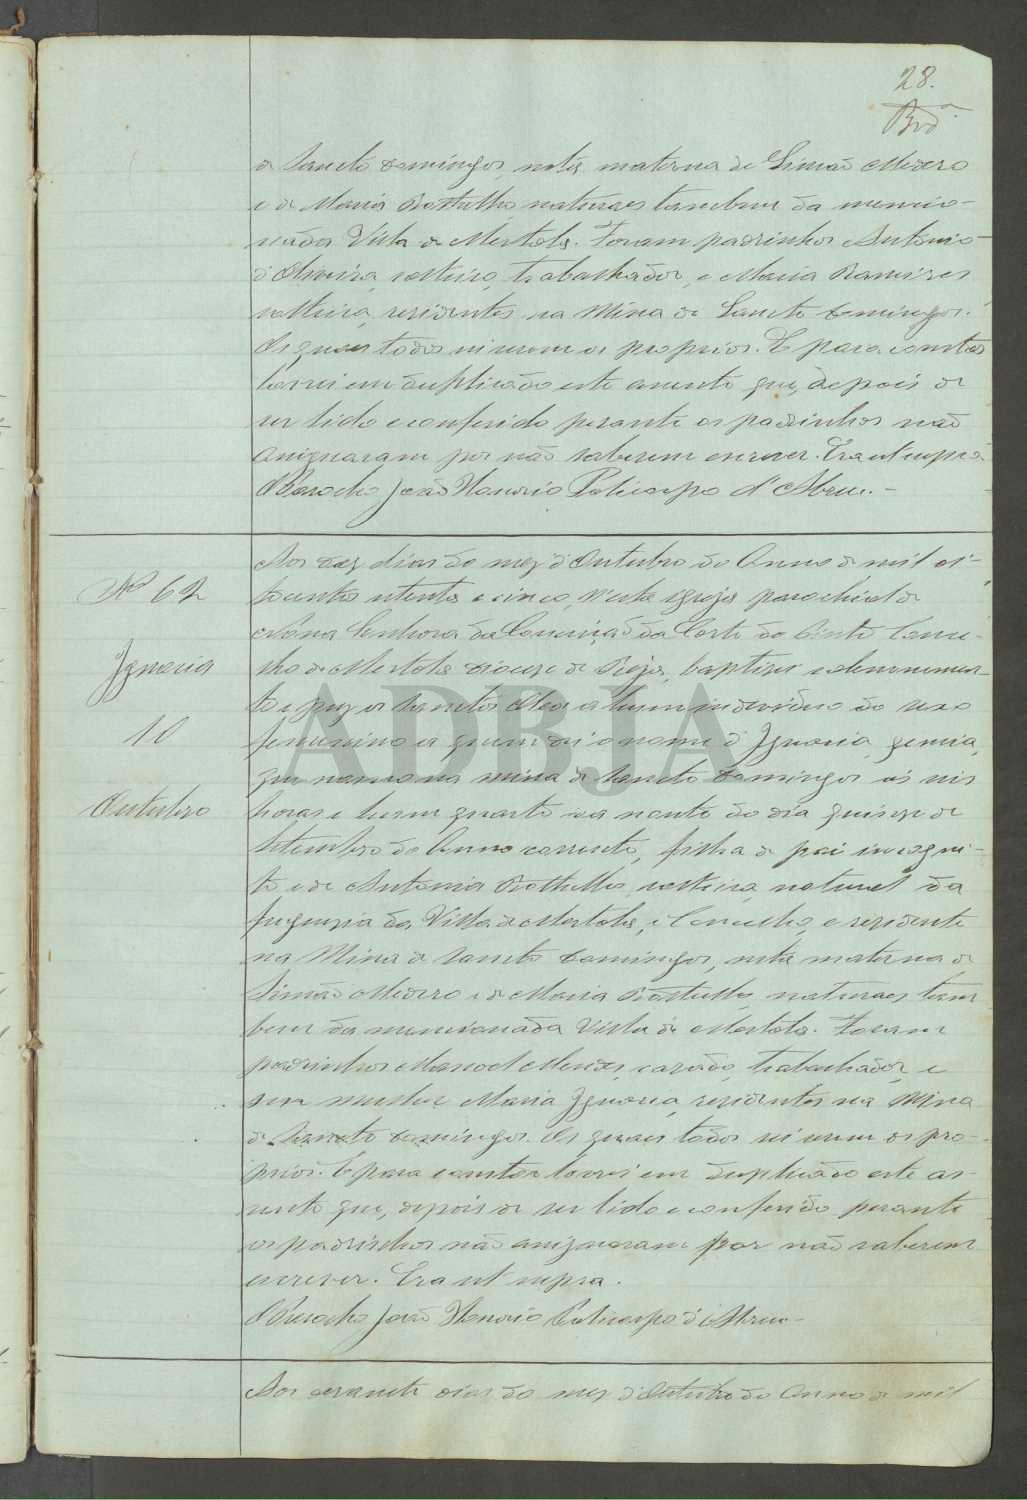 28.
de Sancto Domingos, neta materna de Simão Medero
e de Maria Botelho, naturaes tambem da mencio-
nada Villa de Mertola. Foram padrinhos Antonio
d'Oliveira, solteiro, trabalhador, e Maria Ramires
solteira, residentes na Mina de Sancto Domingos.
Os quaes todos sei serem os proprios. E para constar
lavrei em duplicado este assento que, depois de
ser lido e conferido perante os padrinhos não
assignaram por não saberem escrever. Era ut supra
O Parocho João Honorio Policarpo d'Abreu.-
Aos dez dias do mez d'Outubro do Anno de mil oi-
tocentos oitenta e cinco, n'esta egreja parochial de
Nossa Senhora da Conceição da Corte do Pinto Conce-
lho de Mertola Diocese de Beja, baptizei solemnemen-
te e puz os Sanctos Oleos a hum individuo do sexo
femenino a quem dei o nome d'Ignacia, gemea,
que nasceu na Mina de Sancto Domingos ás seis
horas e hum quarto da noute do dia quinze de
Setembro do Anno corrente, filha de pai incogni-
to e de Antonia Botelho solteira, natural da
freguezia da Villa de Mertola, e Concelho, e residente
na Mina de Sancto Domingos, neta materna de
Simão Medero e de Maria Botelho, naturaes tam
bem da mencionada Villa de Mertola. Foram
padrinhos Manoel Mendes, casado, trabalhador, e
sua mulher Maria Ignacia, residentes na Mina
de Sancto Domingos. Os quaes todos sei serem os pro-
prios. E para constar lavrei em duplicado este as-
sento que, depois de ser lido e conferido perante
os padrinhos não assignaram por não saberem
escrever. Era ut supra.
O Parocho João Honorio Policarpo d'Abreu-
Nº 62
Ignacia
10
Outubro
Aos dezassete dias do mez d'Outubro do Anno de mil
ADBJA